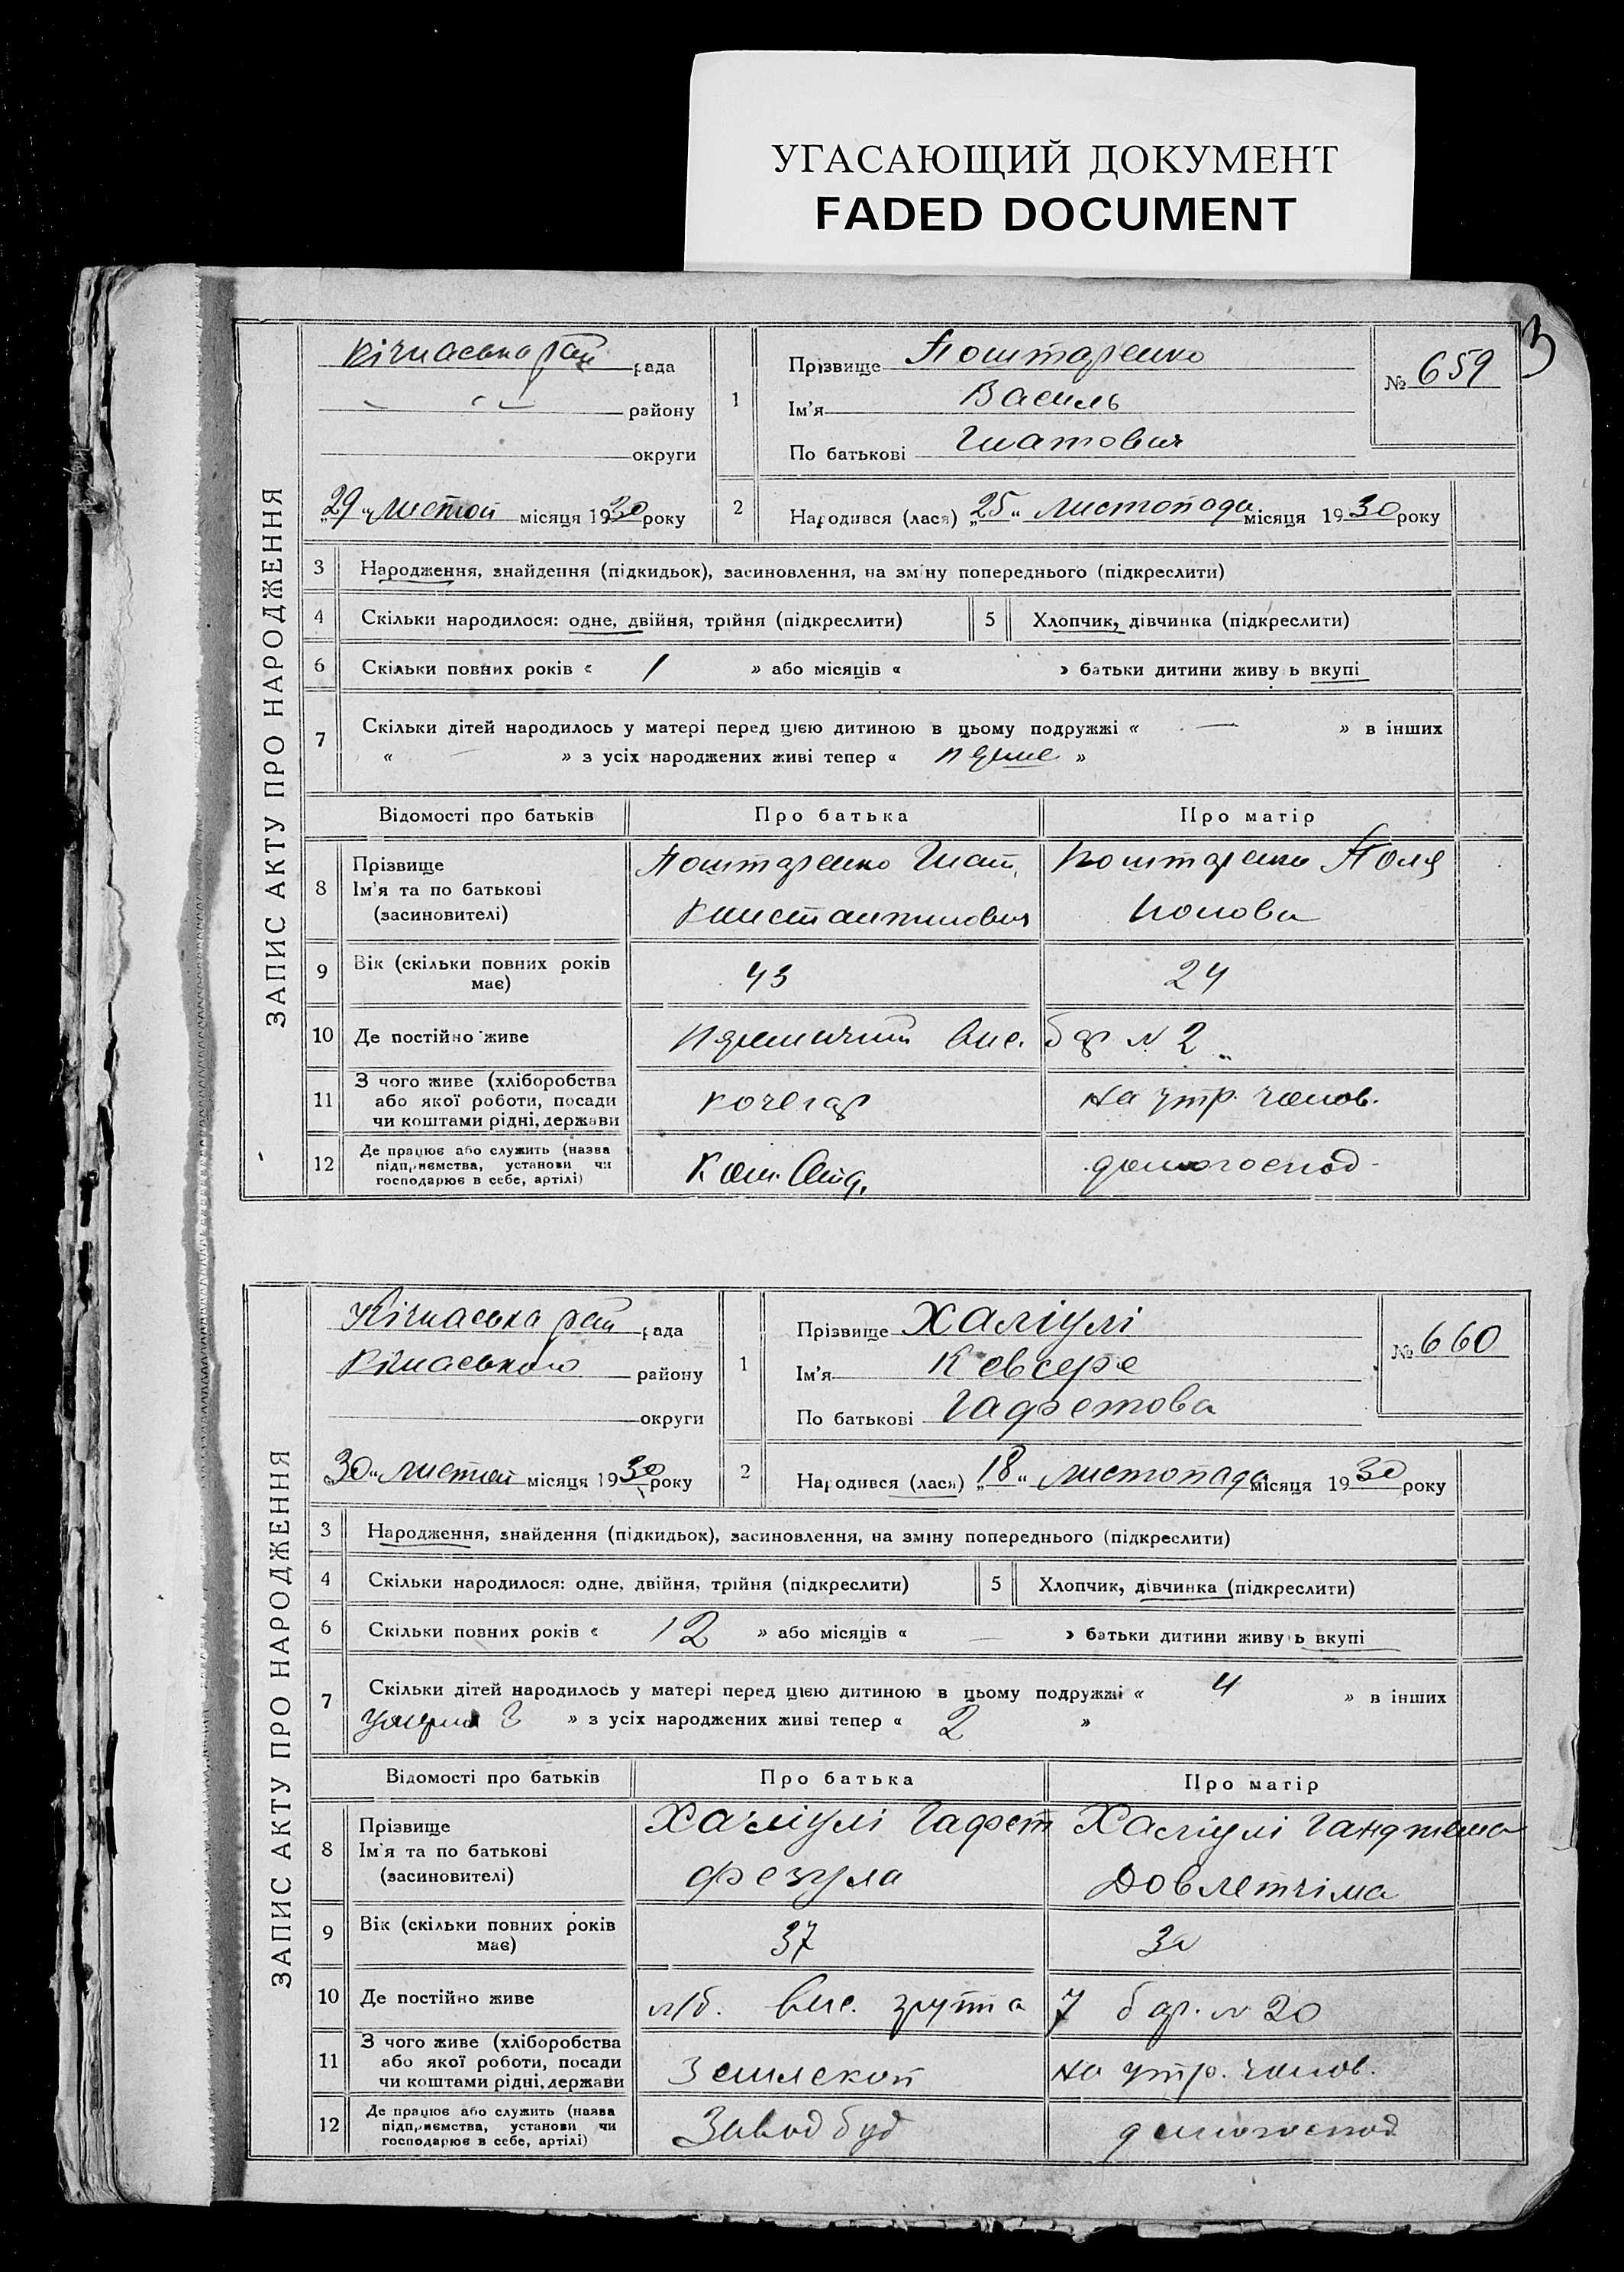 УГАСАЮЩИЙ ДОКУМЕНТ
FADED DOCUMENT
3
ЗАПИС АКТУ ПРО НАРОДЖЕННЯ
рада
району
округи
„29“ листоп місяця 1930 року
1
Прізвище Поштаренко
Ім'я Василь
По батькові Гнатович
№ 659
2
Народився (лася) „25“ листопада місяця 1930 року
3 Народження, знайдення (підкидьок), засиновлення, на зміну попереднього (підкреслити)
4 Скільки народилося: одне, двійня, трійня (підкреслити)
5 Хлопчик, дівчинка (підкреслити)
6 Скільки повних років « 1 » або місяців « » батьки дитини живуть вкупі
7 Скільки дітей народилось у матері перед цією дитиною в цьому подружжі « — » в інших
« — » з усіх народжених живі тепер « перше »
Відомості про батьків Про батька Про матір
8 Прізвище
Ім'я та по батькові
(засиновителі)
Поштаренко Гнат
Константинович
Поштаренко Поля
9 Вік (скільки повних років
має)
43 24
10 Де постійно живе
бар N 2
11 З чого живе (хліборобства
або якої роботи, посади
чи коштами рідні, держави
кочегар на утр. чолов.
12 Де працює або служить (назва
підприємства, установи чи
господарює в себе, артілі)
домогоспод
ЗАПИС АКТУ ПРО НАРОДЖЕННЯ
рада
району
округи
„30“ листоп місяця 1930 року
1
Прізвище Халіулі
Ім'я Кевсере
По батькові Гафетова
№ 660
2
Народився (лася) „18“ листопада місяця 1930 року
3 Народження, знайдення (підкидьок), засиновлення, на зміну попереднього (підкреслити)
4 Скільки народилося: одне, двійня, трійня (підкреслити)
5 Хлопчик, дівчинка (підкреслити)
6 Скільки повних років « 12 » або місяців « — » батьки дитини живуть вкупі
7 Скільки дітей народилось у матері перед цією дитиною в цьому подружжі « 4 » в інших
» з усіх народжених живі тепер « 2 »
Відомості про батьків Про батька Про матір
8 Прізвище
Ім'я та по батькові
(засиновителі)
Халіулі Гафет
Фезула
Халіулі
Довлетгіма
9 Вік (скільки повних років
має)
37
10 Де постійно живе
група 7 бар. N 20
11 З чого живе (хліборобства
або якої роботи, посади
чи коштами рідні, держави
Землекоп на утр. чолов.
12 Де працює або служить (назва
підприємства, установи чи
господарює в себе, артілі)
Завод буд домогоспод